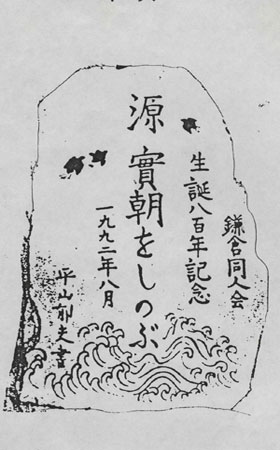 鎌倉同人会
生誕八百年記念
源實朝をしのぶ
一九九二年八月
平山郁夫書